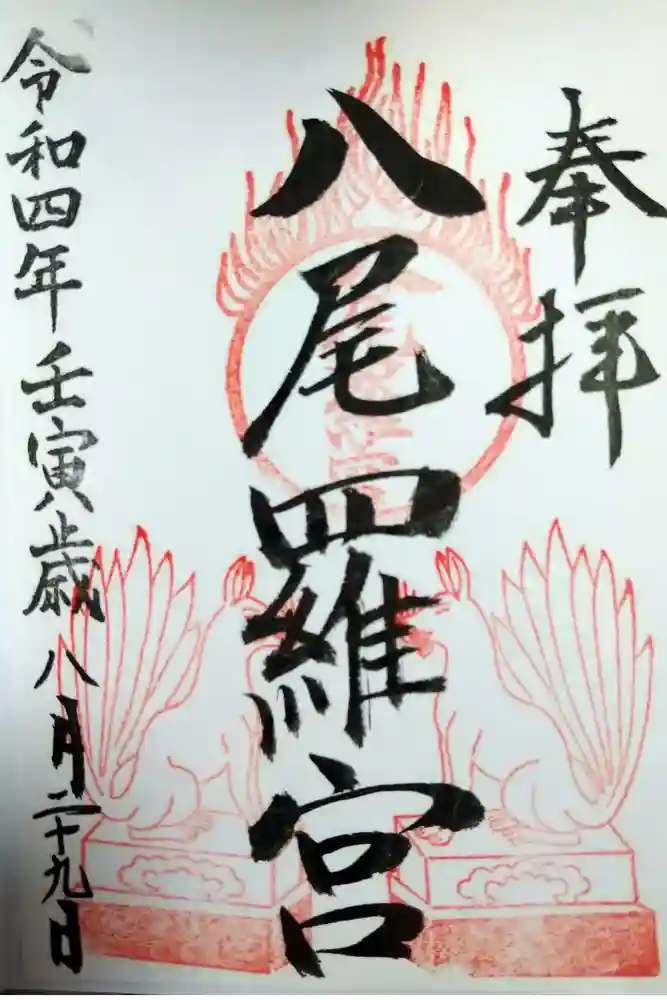 奉拝
八尾羅宮
令和四年壬寅歳八月二十九日